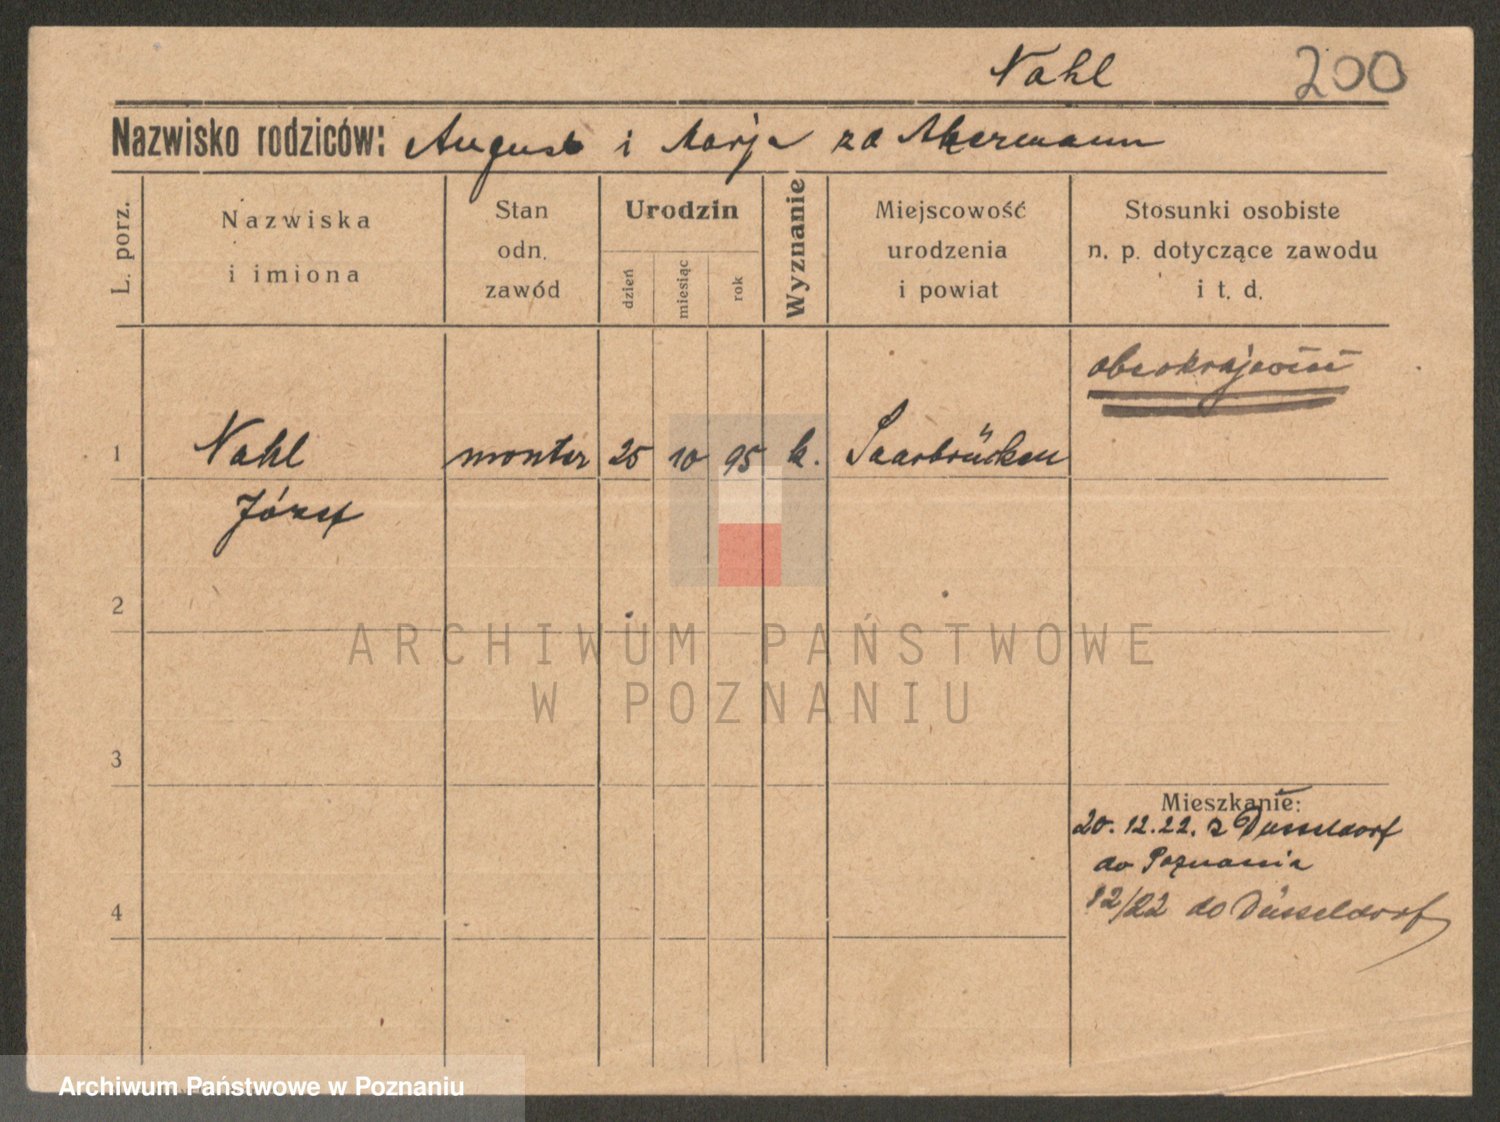 Nahl 200
Nazwisko rodziców: August i Marja zd Akermann
L. porz.
Nazwiska
i imiona
Stan
odn.
zawód
Urodzin
dzień
miesiąc
rok
Wyznanie
Miejscowość
urodzenia
i powiat
Stosunki osobiste
n. p. dotyczące zawodu
i t. d.
obcokrajowiec
1 Nahl monter 25 10 95 k. Saarbrücken
Józef
2
ARCHIWUM PAŃSTWOWE
W POZNANIU
3
Mieszkanie:
20.12.22. z Düsseldorf
do Poznania
4
12/22 do Düsseldorf
Archiwum Państwowe w Poznaniu